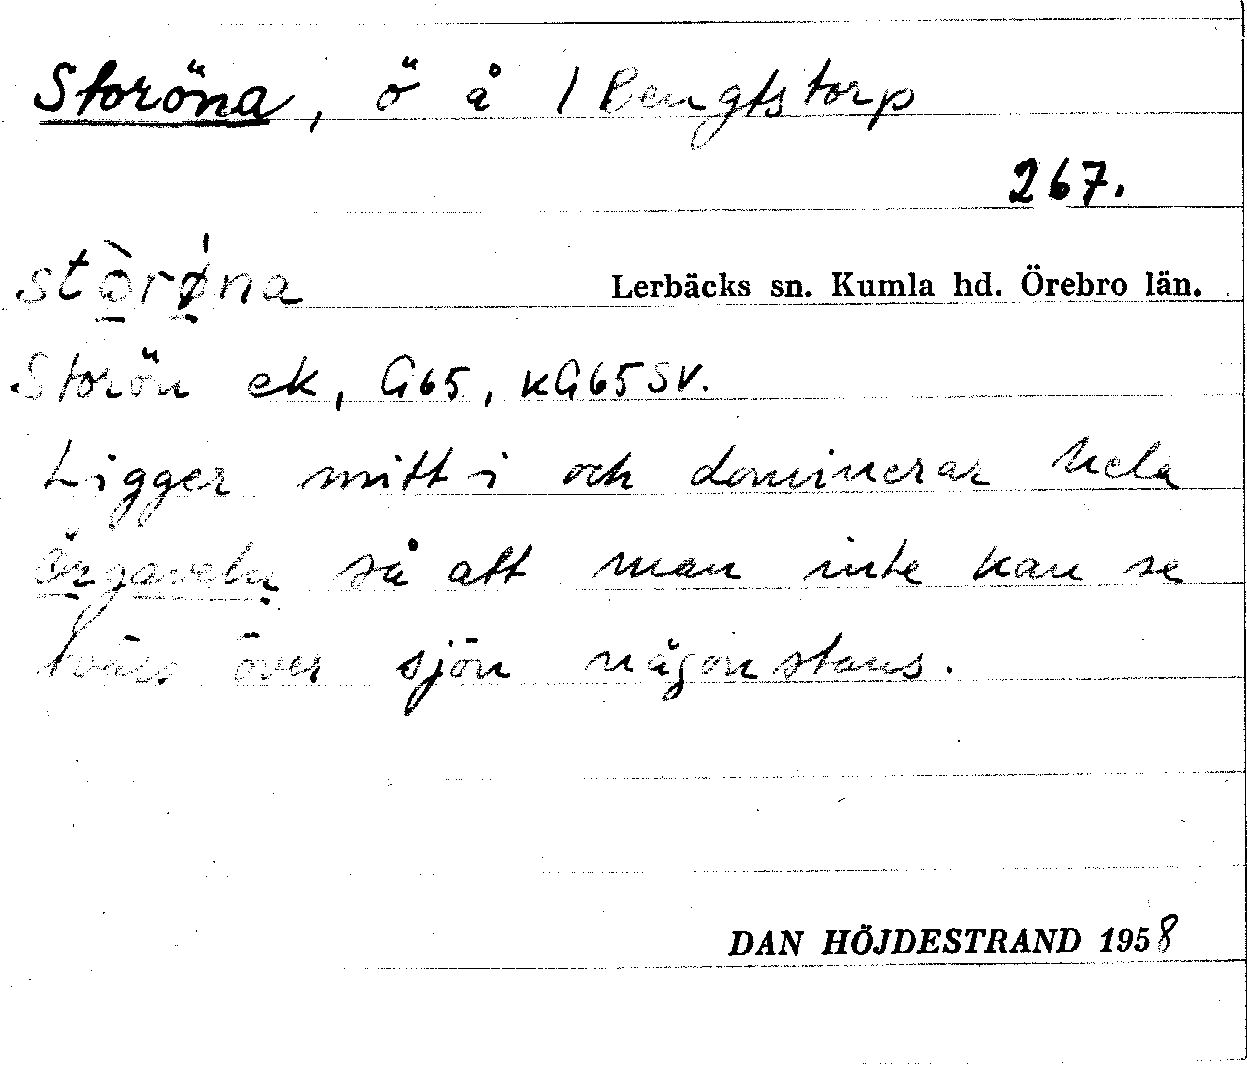 Storöna, ö å 1 Bengtstorp
267.
stòrǿna
Lerbäcks sn. Kumla hd. Örebro län.
Storön ek, G65, kG65SV.
Ligger mitt i och dominerar hela
så att man inte kan se
tvärs över sjön någonstans.
DAN HÖJDESTRAND 1958